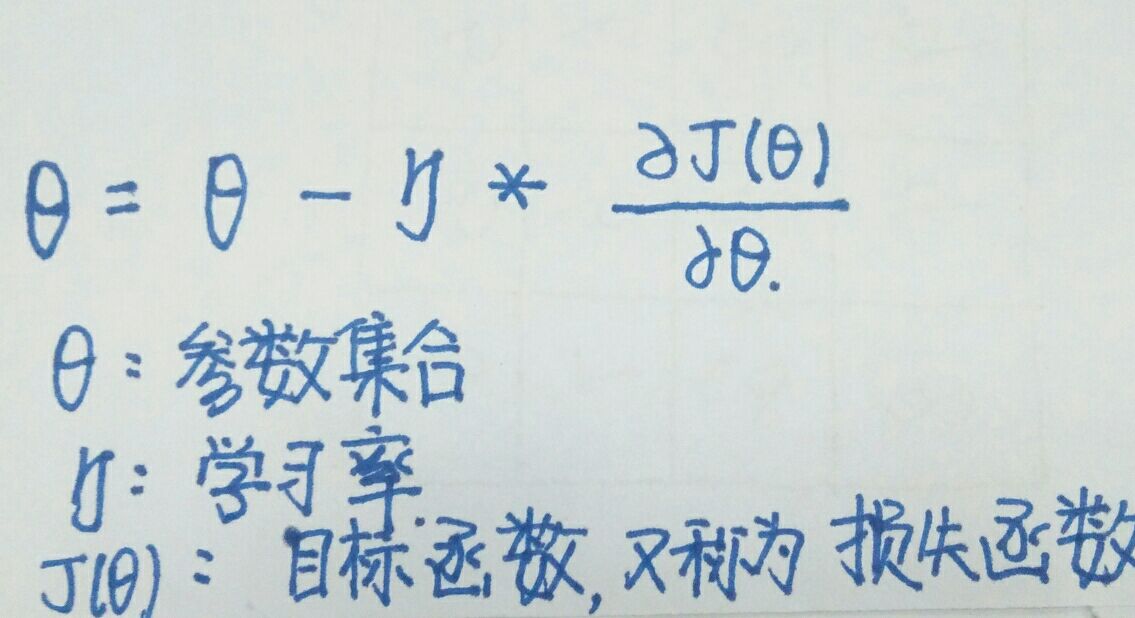 θ = θ - η * ∂J(θ)/∂θ.
θ: 参数集合
η: 学习率.
J(θ): 目标函数, 又称为 损失函数